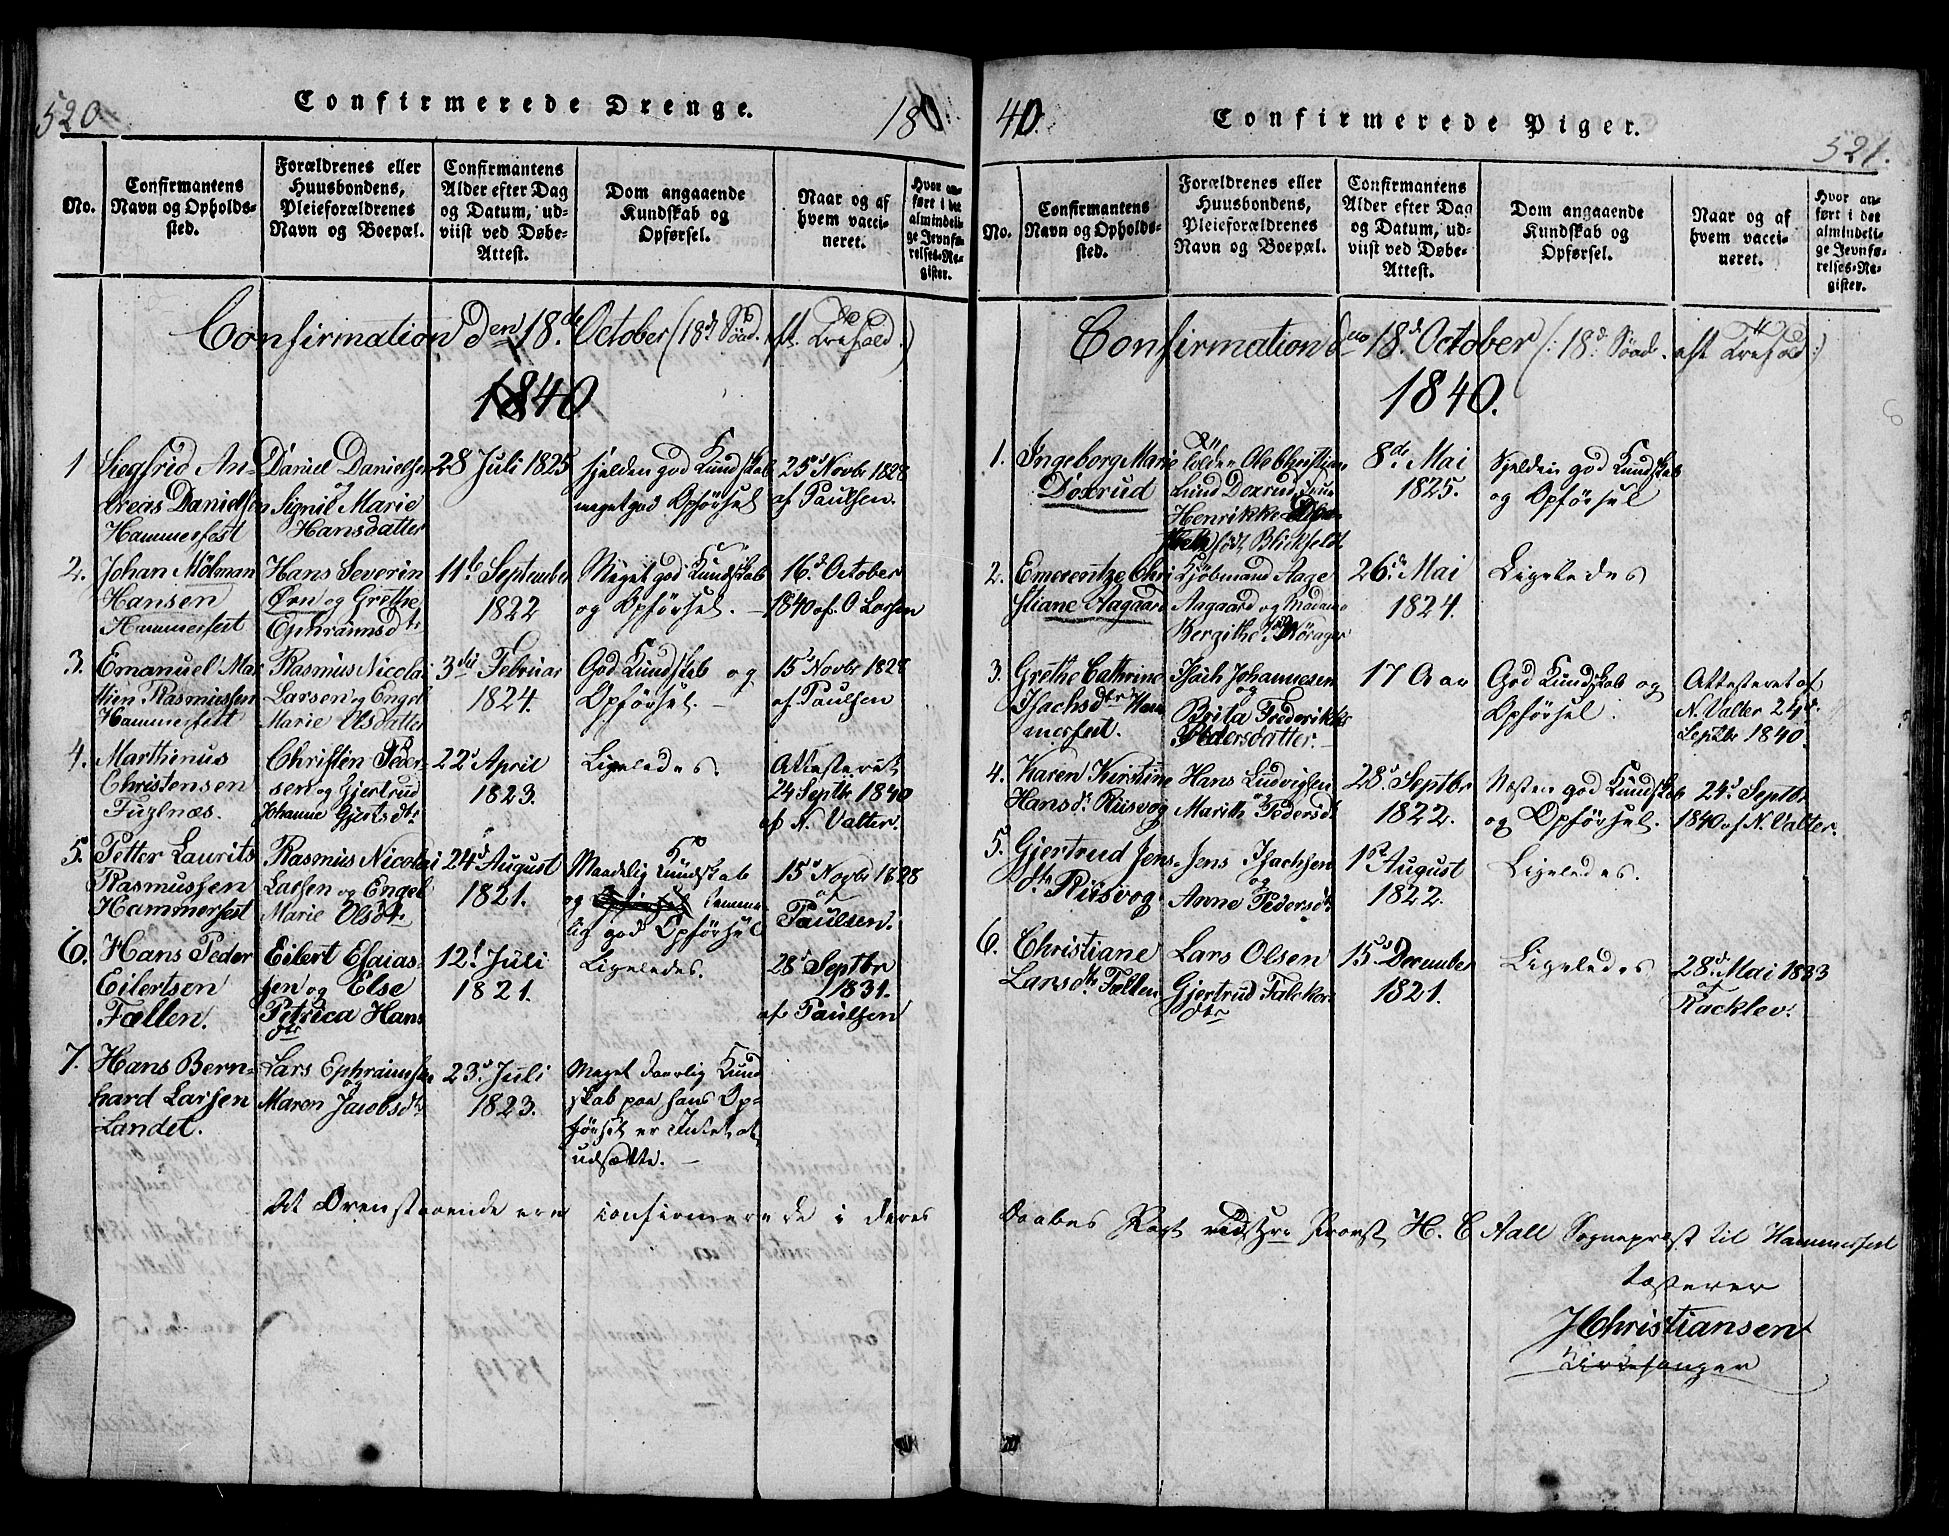 520.
Confirmerede Drenge.
18
No.
Confirmantens
Navn og Opholds-
sted.
Forældrenes eller
Huusbondens,
Pleieforældrenes
Navn og Boepæl.
Confirmantens
Alder efter Dag
og Datum, ud-
viist ved Døbe-
Attest.
Dom angaaende
Kundskab og
Opførsel.
Naar og af
hvem vacci-
neret.
Hvor an-
ført i det
almindeli-
ge Jevnfø-
relses-Re-
gister.
Confirmation den 18de October (18d Sønd. eft. Trefold.)
1840
1
Siegfrid An-
dreas Danielsen
Hammerfest
Daniel Danielsen
og
Signil Marie
Hansdatter
28 Juli 1825
sjelden god Kundskab
meget god Opførsel
25d Novbr 1828
af Paulsen.
2.
Johan Mølman
Hansen
Hammerfest
Hans Severin
Ørn og Grethe
Ephraimsdtr
11te September
1822
Meget god Kundskab
og Opførsel. –
16d October
1840 af O Larsen
3.
Emanuel Mar
thin Rasmussen
Hammerfest
Rasmus Nicolai
Larsen og Engel
Marie Olsdatter
3die Februar
1824.
God Kundskab og
Opførsel. –
15d Novbr 1828
af Paulsen
4.
Marthinus
Christensen
Fuglnæs.
Christen Peder-
sen og Gjertrud
Johanne Gjertsdtr
22d April
1823.
Ligeledes.
Attesteret
24 Septbr 1840
af N. Valter.
5.
Petter Laurits
Rasmussen
Hammerfest
Rasmus Nicolai
Larsen og Engel
Marie Olsdtr
24d August
1821.
Maadelig Kundskab
og Opførsel temme
lig god Opførsel
15d Novbr 1828
af
Paulsen.
6.
Hans Peder
Eilertsen
Fællen.
Eilert Esaias-
sen og Else
Petrica Hans
dtr
12d Juli
1821.
Ligeledes.
28d Septbr
1831.
af Paulsen
7.
Hans Bern-
hard Larsen
Landet.
Lars Ephraimsen
og
Maren Jacobsdtr
23d Juli
1823.
Meget daarlig Kund
skab paa hans Op-
førsel er Intet at
udsætte. –
At Ovenstaaende ere confirmerede i deres
40
Confirmerede Piger.
521.
No.
Confirmantens
Navn og Opholds-
sted.
Forældrenes eller
Huusbondens,
Pleieforældrenes
Navn og Boepæl.
Confirmantens
Alder efter Dag
og Datum, ud-
viist ved Døbe-
Attest.
Dom angaaende
Kundskab og
Opførsel.
Naar og af
hvem vacci-
neret.
Hvor an-
ført i det
almindeli-
ge Jevnfø-
relses-Re-
gister.
Confirmation den 18d October (: 18d Sønd. eft Trefold:)
1840.
1.
Ingeborg Marie
Doxrud
Ole Christian
Lund Doxrud
Henrikke
født Blickfeldt
8de Mai
1825.
Sjelden god Kundskab
og Opførsel
2.
Emerentze Chri
stiane Aagaard
Kjøbmand Aage
Aagaard og Madame
Bergithe
26d Mai
1824.
Ligeledes
3.
Grethe Cathrine
Isachsdtr Ham
merfest.
Isach Johannesen
og
Brita Frederikke
Pedersdatter. –
17 Aar
God Kundskab og
Opførsel.
Attesteret af
N. Valter 24d
Septbr 1840.
4.
Karen Kirstine
Hansdtr Riisvog
Hans Ludvigsen
og
Marith Pedersdtr
28d Septbr
1822.
Næsten god Kundskab
og Opførsel.
24d Septbr
1840 af N. Valter.
5.
Gjertrud Jens-
dtr Riisvog
Jens Isachsen
og
Anne Pedersdtr
1st August
1822.
Ligeledes.
6.
Christiane
Larsdtr Fællen
Lars Olsen
Gjertrud Falckor
dtr
15d December
1821.
Ligeledes
28d Mai 1833
af
Racklev.
Daabes Pagt Provst H. C Aall Sognepræst til Hammerfest
testerer
JChristiansen
Kirkesanger